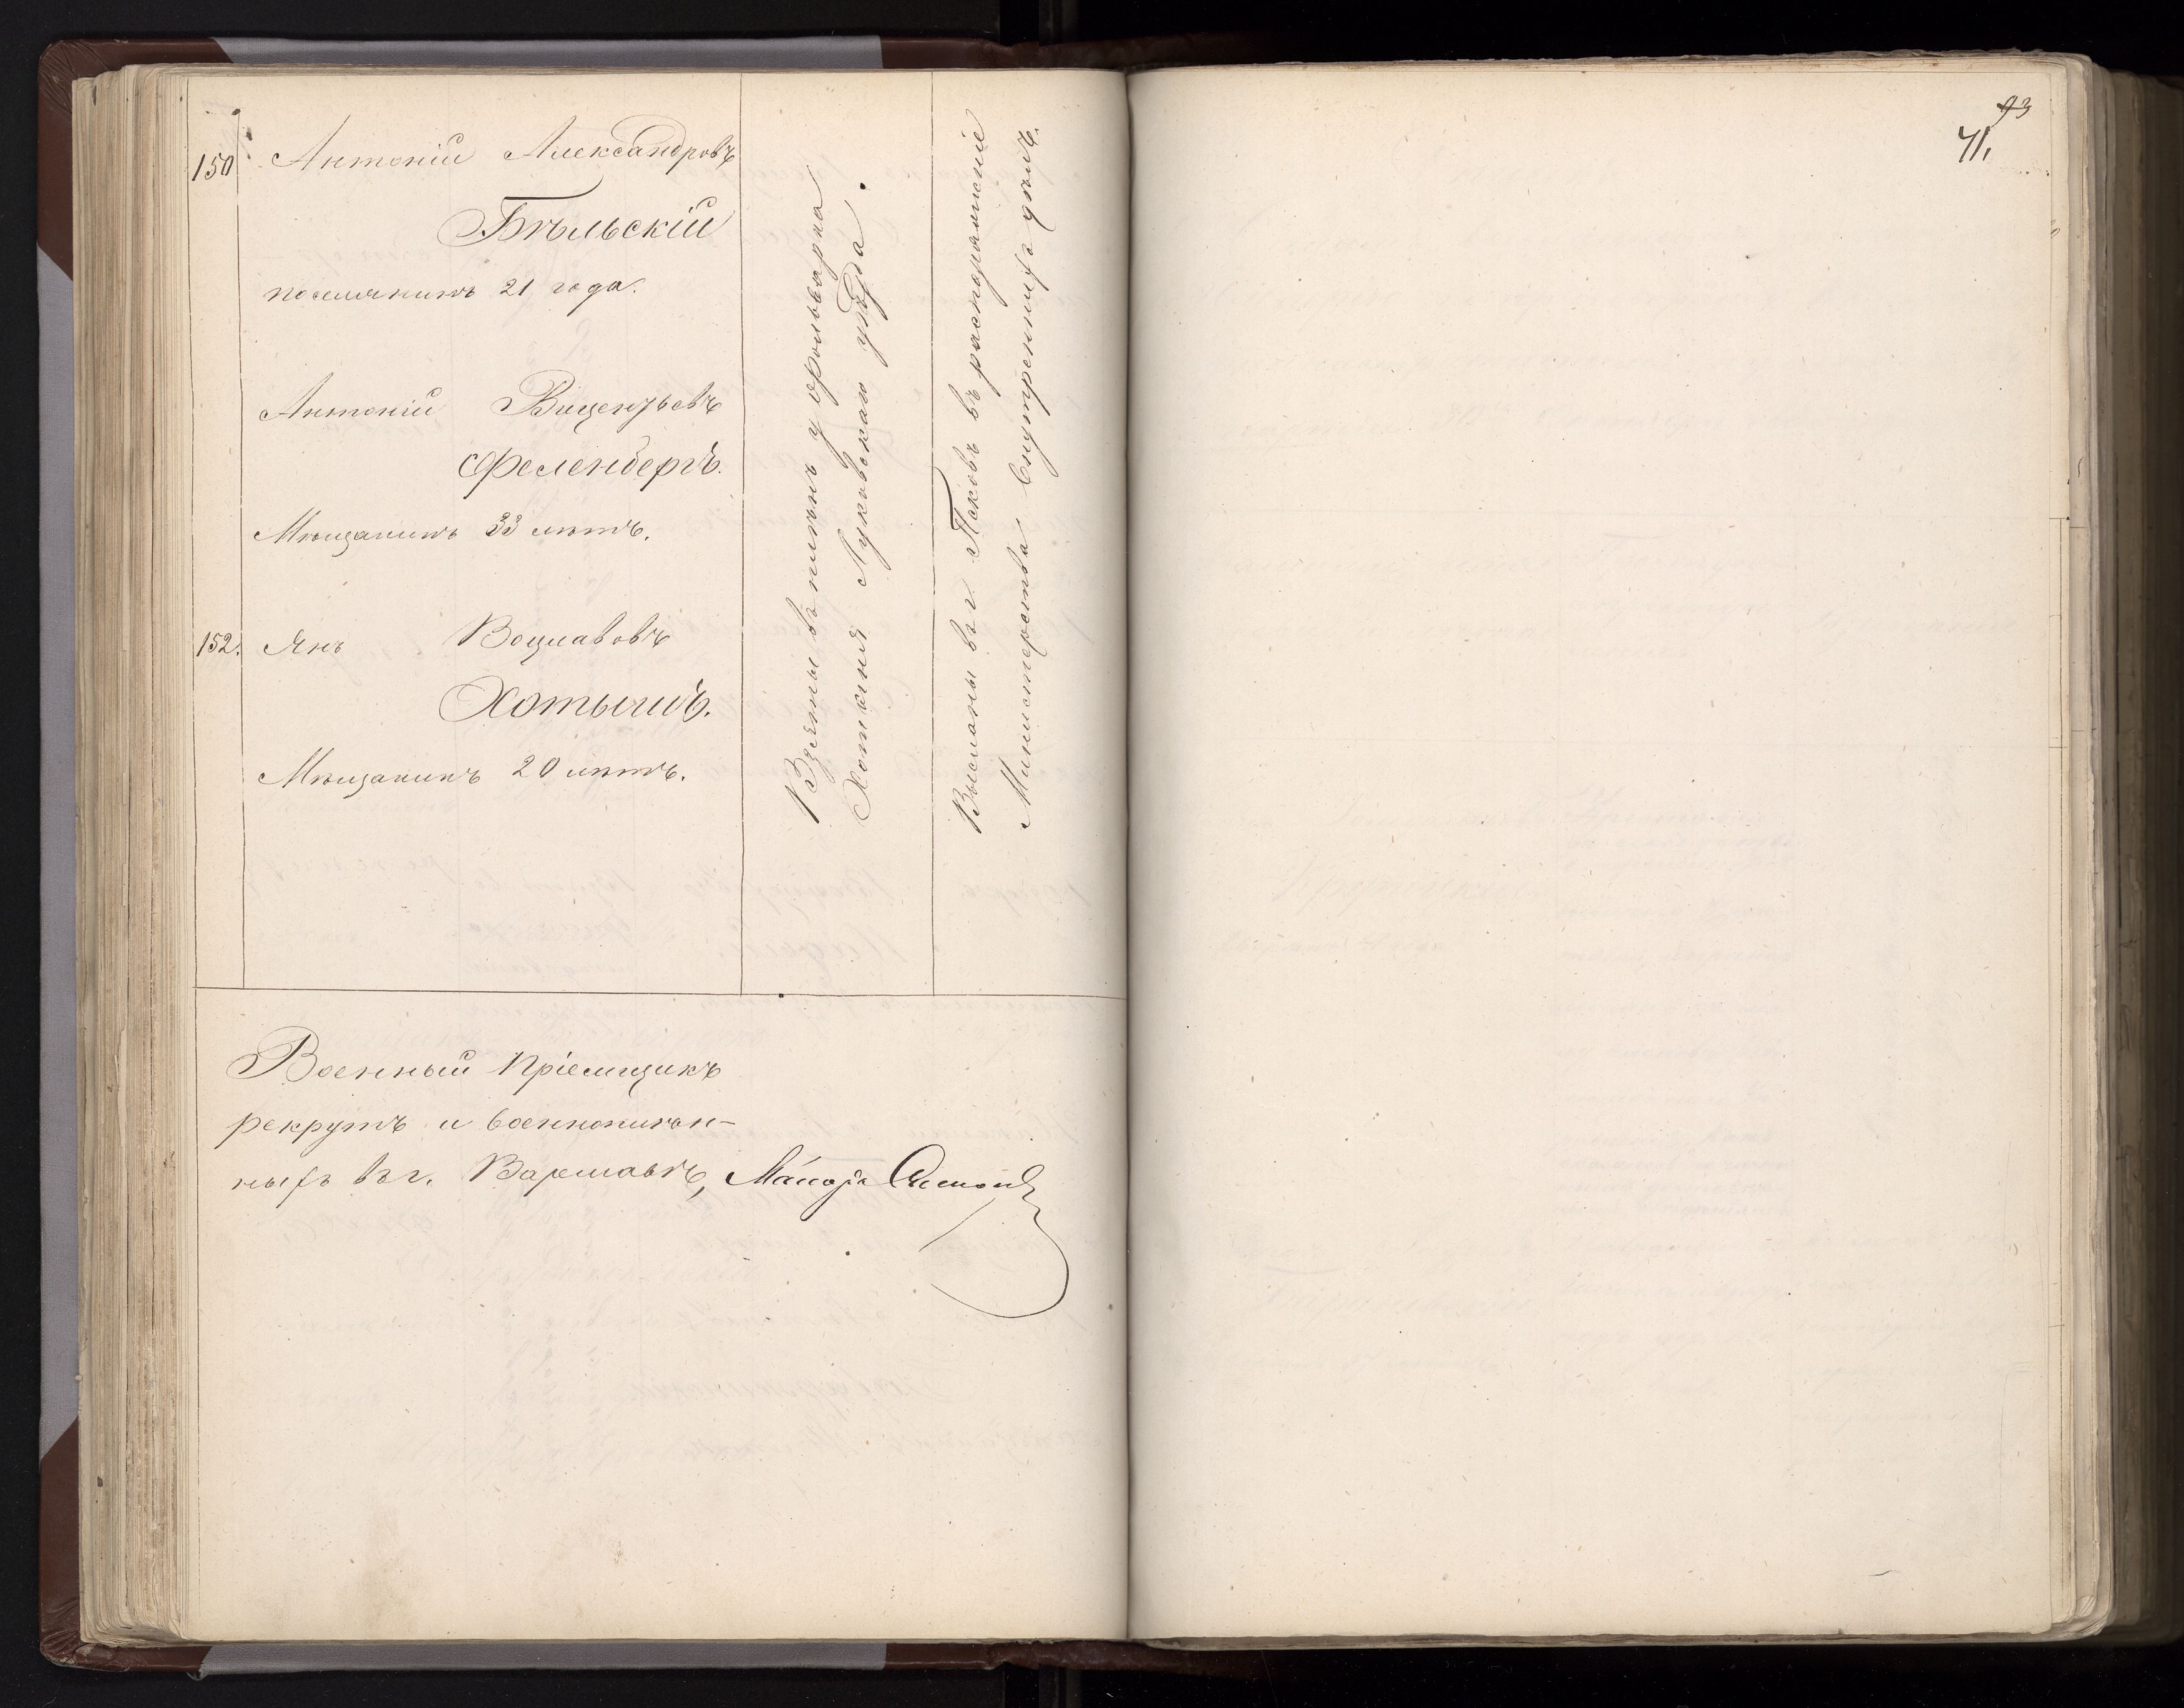 150 Антоній Александровъ
Бѣльскій
поселянинъ 21 года.
Антоній Вицентьевъ
Феленбергъ.
Мѣщанинъ 33 лѣтъ.
152. Янъ Воцлавовъ
Хотыличъ.
Мѣщанинъ 20 лѣтъ.
Взяты въ плѣнъ у фольварка
Луковскаго уѣзда.
Высланы въ г. Псковъ въ распоряженіе
Министерства Внутреннихъ дѣлъ.
Военный пріемщикъ
рекрутъ и военноплѣн-
ныхъ въ г. Варшавѣ, Маіоръ
93
71,